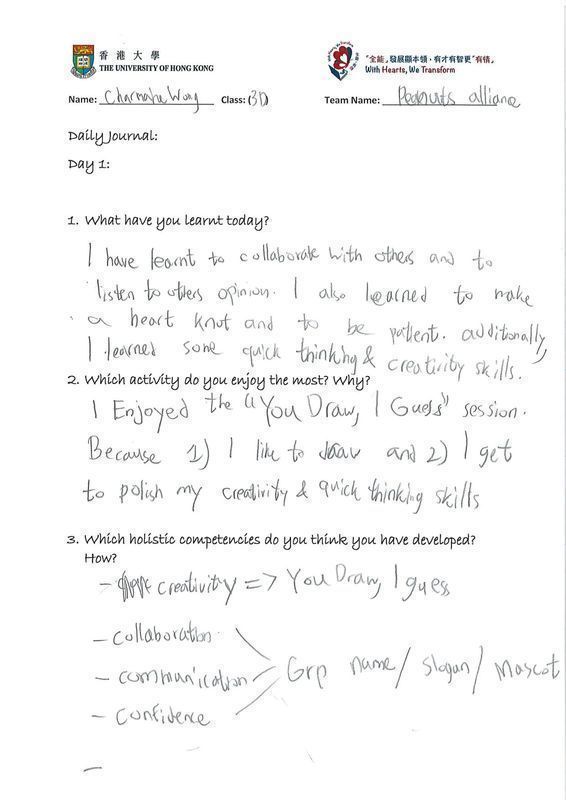 香港大學
THE UNIVERSITY OF HONG KONG
「全能」發展顯本領，有才有智更「有情」
With Hearts, We Transform
Name: Wong Class: (3D) Team Name: Peanuts alliance
Daily Journal:
Day 1:
1. What have you learnt today?
I have learnt to collaborate with others and to
listen to others opinion. I also learned to make
a heart knot and to be patient. additionally,
I learned some quick thinking & creativity skills.
2. Which activity do you enjoy the most? Why?
I Enjoyed the "You Draw, I Guess" session.
Because 1) I like to draw and 2) I get
to polish my creativity & quick thinking skills
3. Which holistic competencies do you think you have developed?
How?
- creativity => You Draw, I guess
- collaboration
- communication Grp name/ slogan/ Mascot
- confidence
-